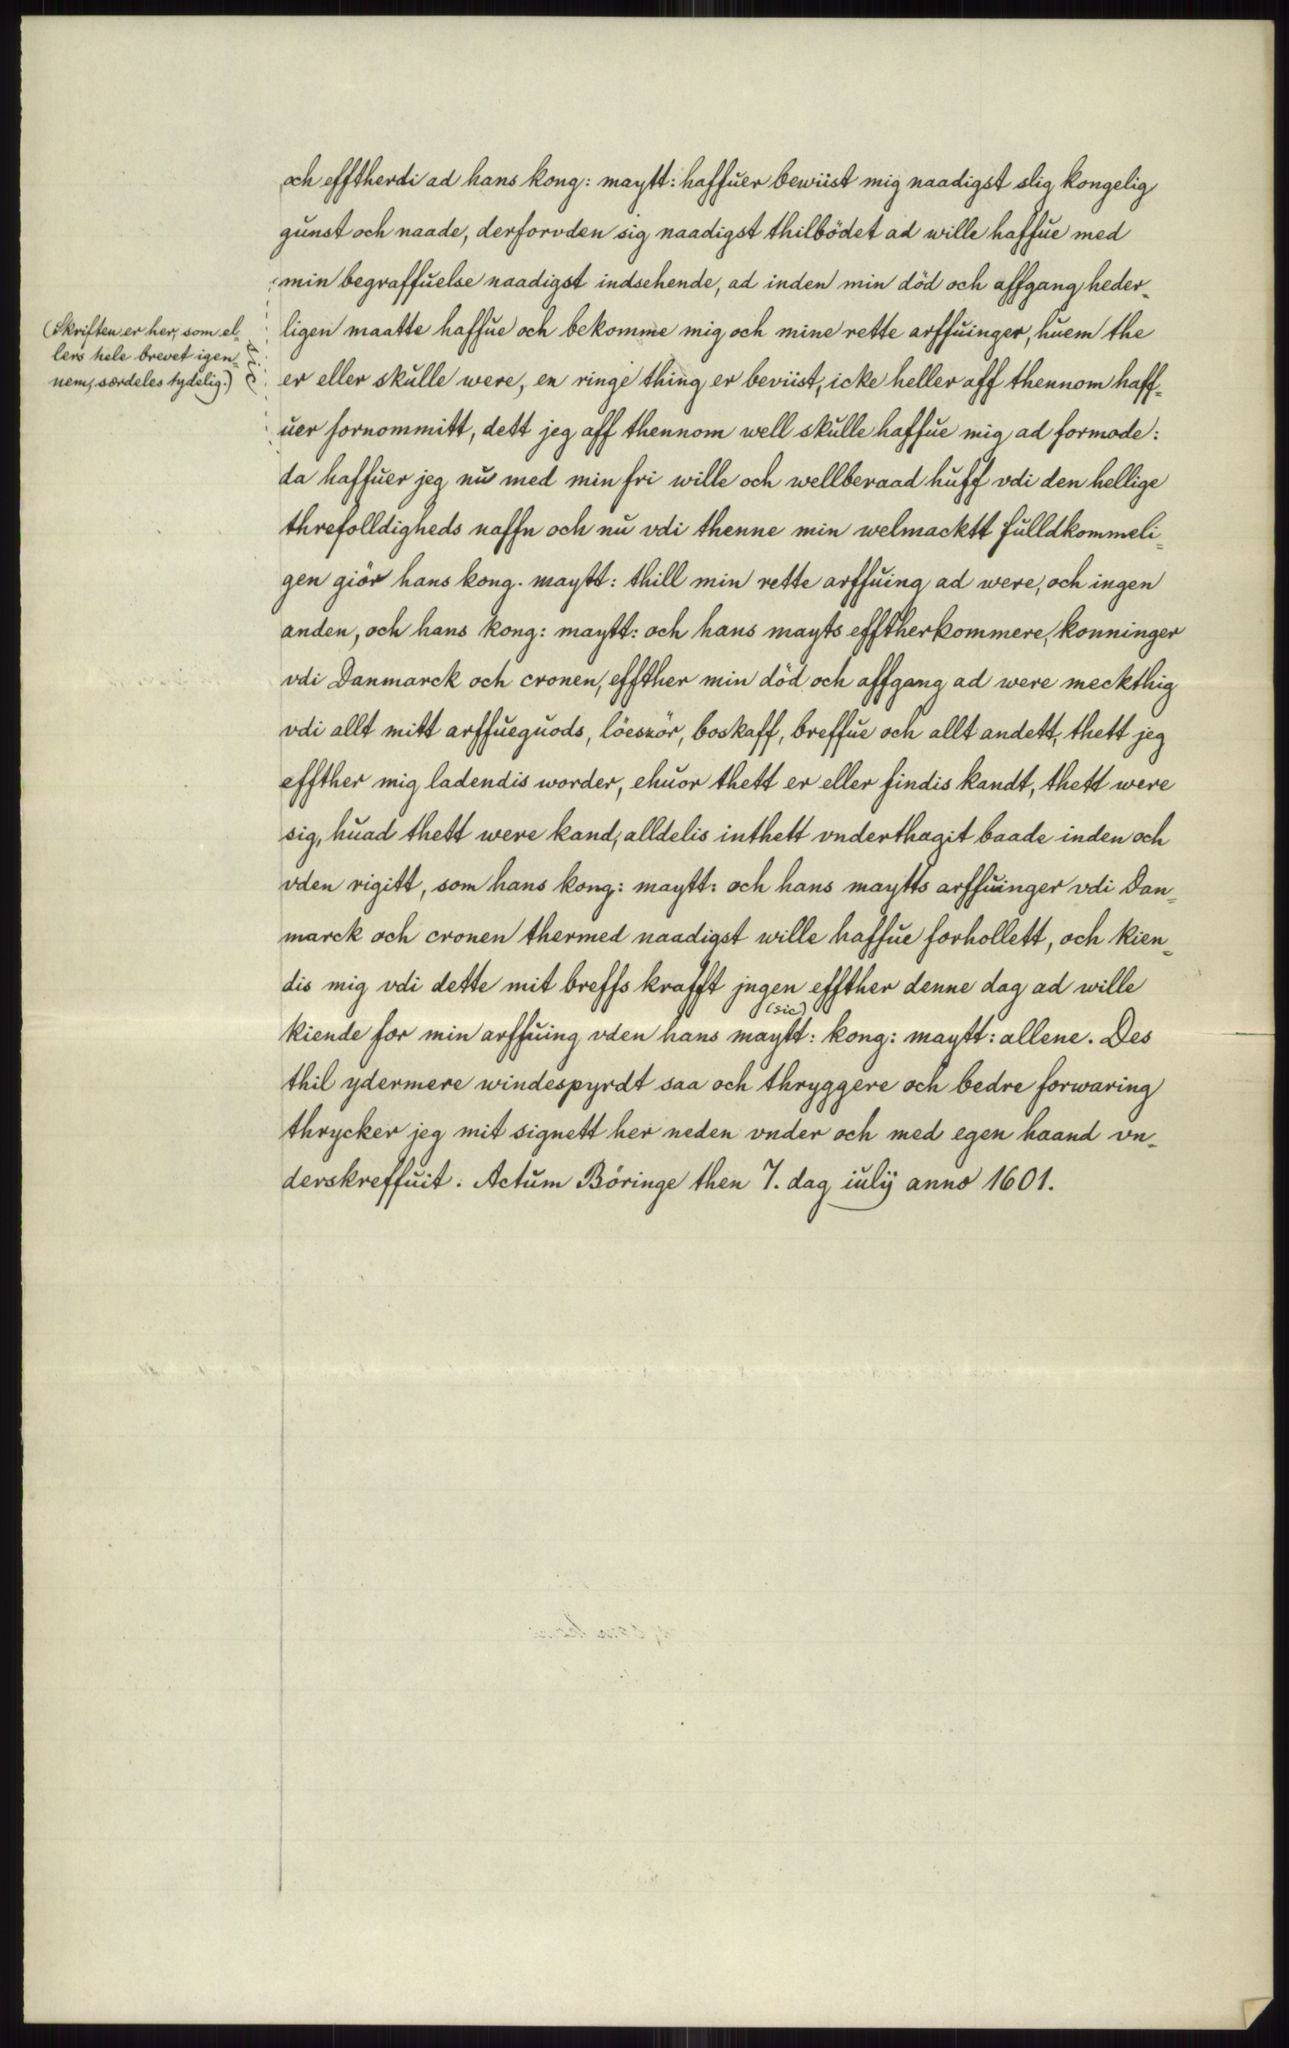 och efftherdi ad hans kong: maytt: haffuer bewiist mig naadigst slig kongelig
gunst och naade, derforvden sig naadigst thilbödet ad wille haffue med
min begraffuelse naadigst indsehende, ad inden min död och affgang heder-
(Skriften er her, som el-
lers hele brevet igen-
nem, særdeles tydelig.)
sic
ligen maatte haffue och bekomme mig och mine rette arffuinger, huem the
er eller skulle were, en ringe thing er beviist, icke heller aff thennom haff-
uer fornommitt, dett jeg aff thennom well skulle haffue mig ad formode:
da haffuer jeg nu med min fri wille och wellberaad huff vdi den hellige
threfolldigheds naffn och nu vdi thenne min welmacktt fulldkommeli-
gen giör hans kong. maytt: thill min rette arffuing ad were, och ingen
anden, och hans kong: maytt: och hans mayts efftherkommere, konninger
vdi Danmarck och cronen, effther min död och affgang ad were meckthig
vdi allt mitt arffueguods, löesxör, boskaff, breffue och allt andett, thett jeg
effther mig ladendis worder, ehuor thett er eller findis kandt, thett were
sig, huad thett were kand, alldelis inthett vnderthagit baade inden och
vden rigitt, som hans kong: maytt: och hans maytts arffuinger vdi Dan-
marck och cronen thermed naadigst wille haffue forhollett, och kien-
dis mig vdi dette mit breffs krafft jngen effther denne dag ad wille
(sic)
kiende for min arffuing vden hans maytt: kong: maytt: allene. Des
thil ydermere windespyrdt saa och thryggere och bedre forwaring
thrycker jeg mit signett her neden vnder och med egen haand vn-
derskreffuit. Actum Böringe then 7. dag iulij anno 1601.